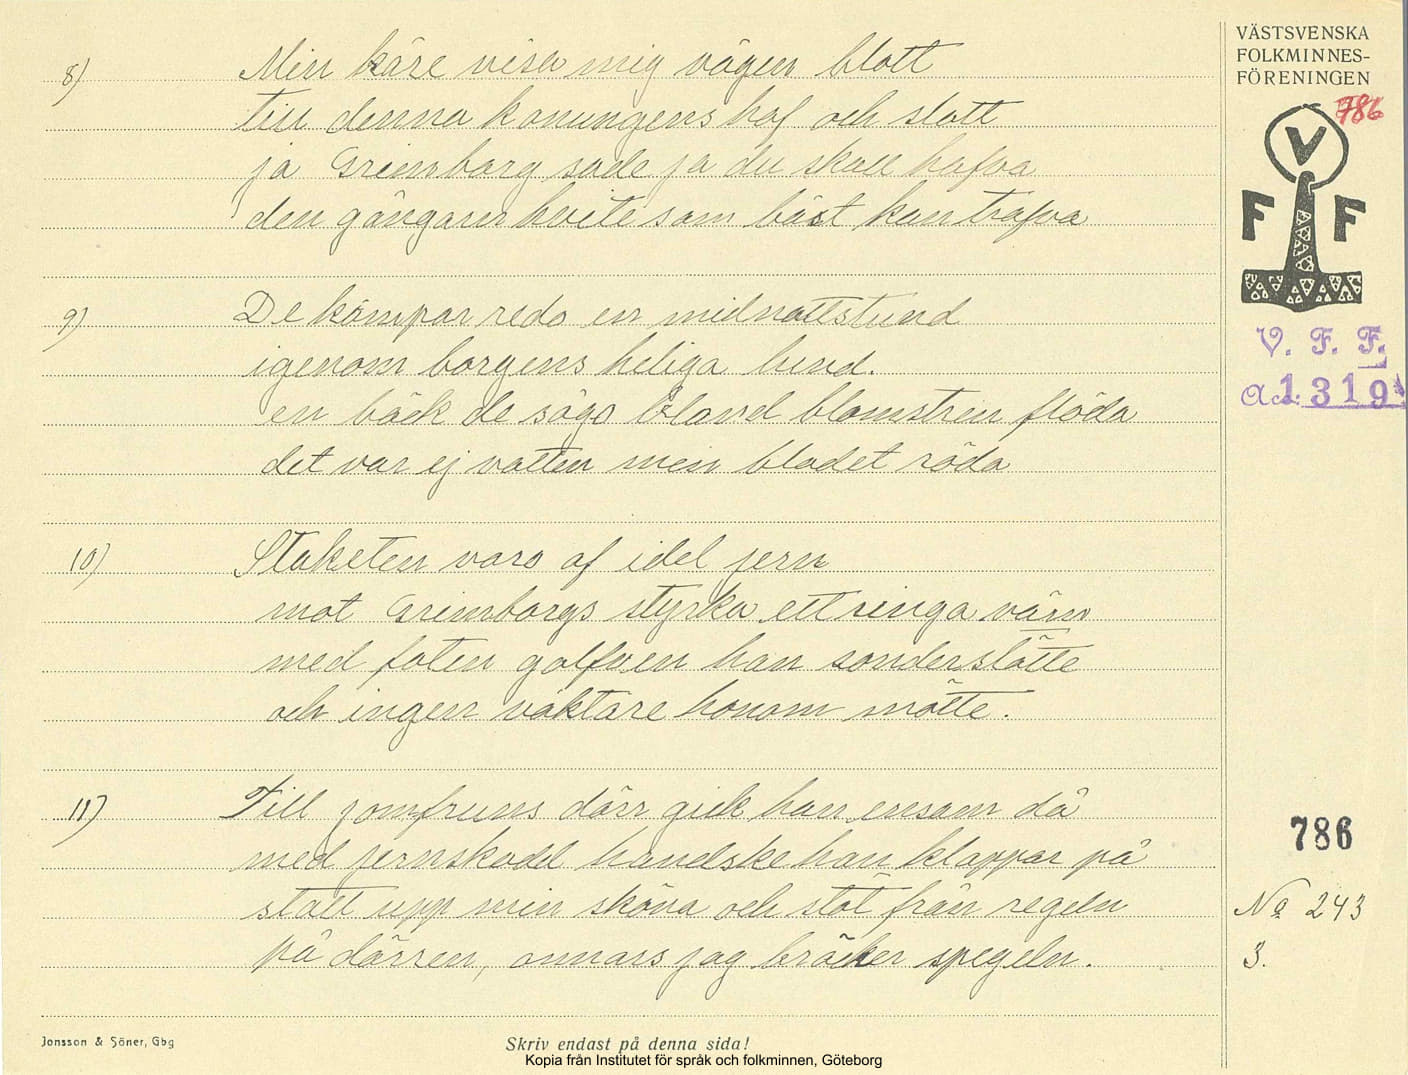 8) Min käre visa mig vägen blott
till denna konungens hof och slott
ja Grimborg sade ja du skall hafva
den gångaren hvite som bäst kan trafva
9) De kämpar redo en midnattstund
igenom borgens heliga lund.
en bäck de sågo bland blomstren flöda
det var ej vatten men blodet röda
10) Staketen voro af idel jern
mot Grimborgs styrka ett ringa värn
med foten golfven han sönderstötte
och ingen väktare honom mötte.
11) Till jomfruns dörr gick han ensam då
med jernskodd handske han klappar på
statt upp min sköna och stöt från regeln
på dörren, annars jag bräcker spegeln.
VÄSTSVENSKA
FOLKMINNES-
FÖRENINGEN
786
V
F F
V. F. F.
a. 1319
786
No 243
3.
Jonsson & Söner, Gbg
Skriv endast på denna sida!
Kopia från Institutet för språk och folkminnen, Göteborg